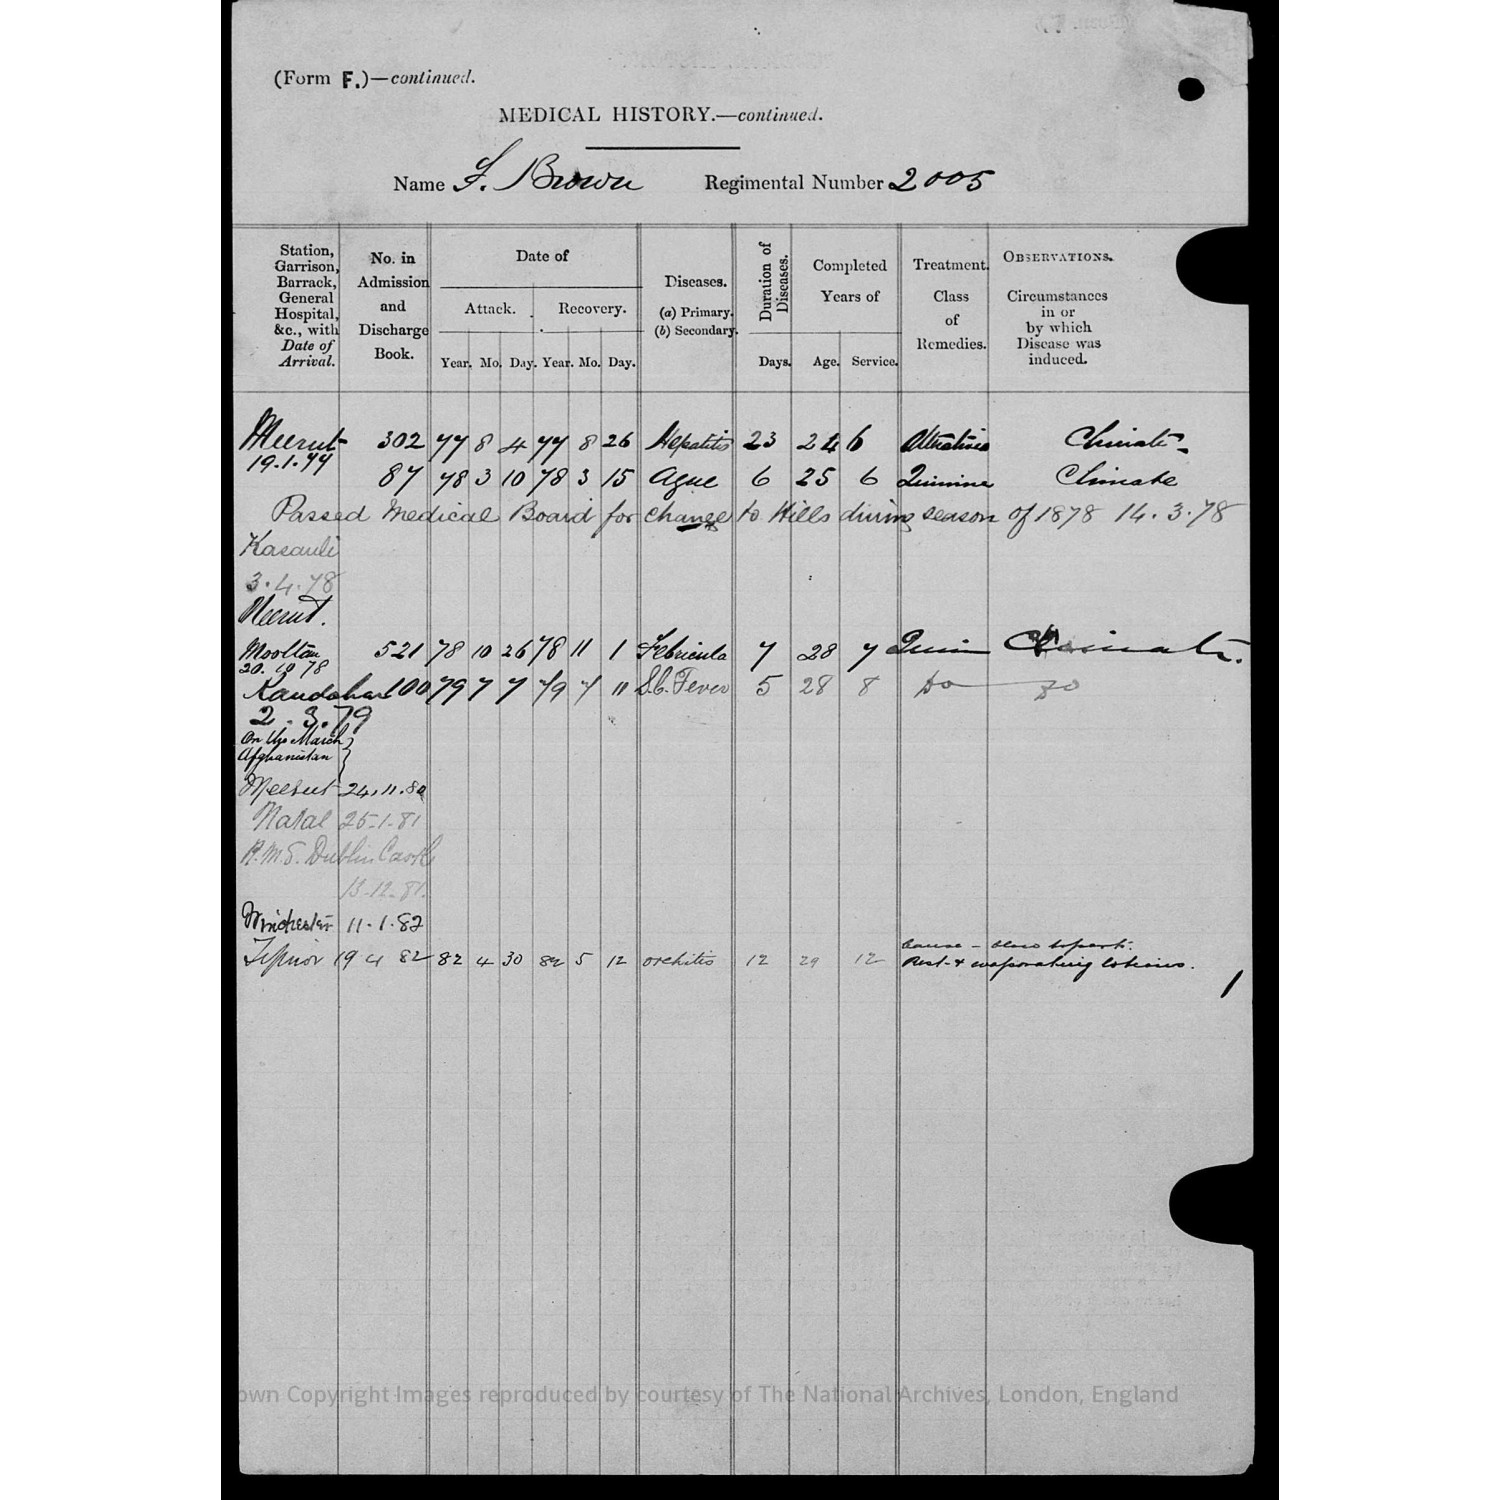 (Form F.)—continued.
MEDICAL HISTORY.—continued.
Name F. Brown Regimental Number 2005
Station, Garrison, Barrack, General Hospital, &c., with Date of Arrival.
No. in Admission and Discharge Book.
Date of
Attack. Recovery.
Year. Mo. Day. Year. Mo. Day.
Diseases. (a) Primary. (b) Secondary.
Duration of Diseases. Days.
Completed Years of
Age. Service.
Treatment. Class of Remedies.
OBSERVATIONS. Circumstances in or by which Disease was induced.
Meerut 302 77 8 4 77 8 26 Hepatitis 23 24 6 Climate
19.1.77
87 78 3 10 78 3 15 Ague 6 25 6 Quinine Climate
Passed Medical Board for change to Hills during season of 1878 14.3.78
Kasauli
3.4.78
Meerut.
Mooltan 521 78 10 26 78 11 1 Febricula 7 28 7 Quin Climate.
20.10 78
Kandahar 100 79 7 7 79 7 11 S.C. Fever 5 28 8 Do Do
2.3.79
On the March
Afghanistan
Meerut 24.11.80
Natal 25-1.81
R.M.S. Dublin Castle
13-12-81.
Winchester 11.1.82
19 4 82 82 4 30 82 5 12 orchitis 12 29 12 Cause - blow to part.
Rest & evaporating lotions.
own Copyright Images reproduced by courtesy of The National Archives, London, England